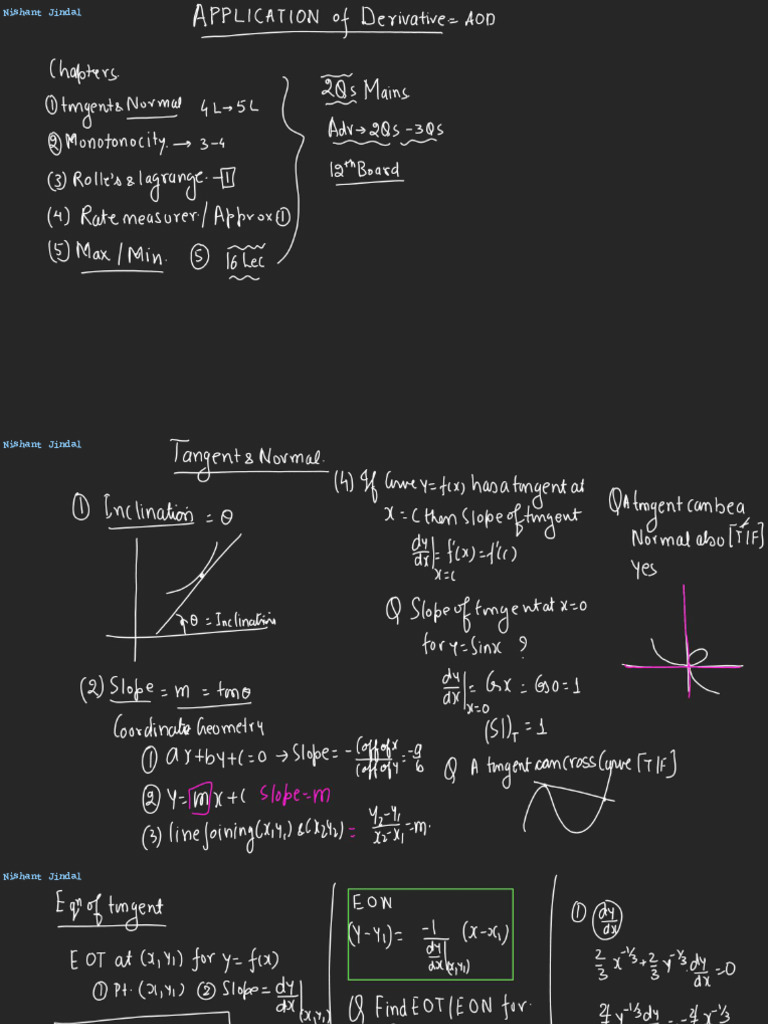 Nishant Jindal
APPLICATION of Derivative = AOD
Chapters
① tangent & Normal 4L→5L
② Monotonocity → 3-4
(3) Rolle's & lagrange - 1
(4) Rate measurer / Approx ①
(5) Max / Min. ⑤ 16 Lec
2Qs Mains
Adv → 2Qs - 3Qs
12th Board
Nishant Jindal
Tangent & Normal.
① Inclination = θ
θ = Inclination
(2) Slope = m = tanθ
Coordinate Geometry
① ax+by+c=0 → Slope = -Coff of x/Coff of y = -a/b
② y = mx+c Slope = m
(3) line Joining (x1,y1) & (x2,y2) = y2-y1/x2-x1 = m.
(4) If Curve y = f(x) has a tangent at
x = c then Slope of tangent
dy/dx|x=c = f'(x) = f'(c)
Q Slope of tangent at x=0
for y = Sinx ?
dy/dx|x=0 = Cosx = Cos0 = 1
(Sl)T = 1
Q A tangent can cross Curve [T/F]
Q A tangent can be a
Normal also [T/F]
yes
Nishant Jindal
Eqn of tangent
EOT at (x1,y1) for y = f(x)
① Pt. (x1,y1) ② Slope = dy/dx|(x1,y1)
EON
(y-y1) = -1/dy/dx|(x1,y1) (x-x1)
Q Find EOT/EON for.
① dy/dx
2/3 x^-1/3 + 2/3 y^-1/3 dy/dx = 0
2/3 y^-1/3 dy = -2/3 x^-1/3